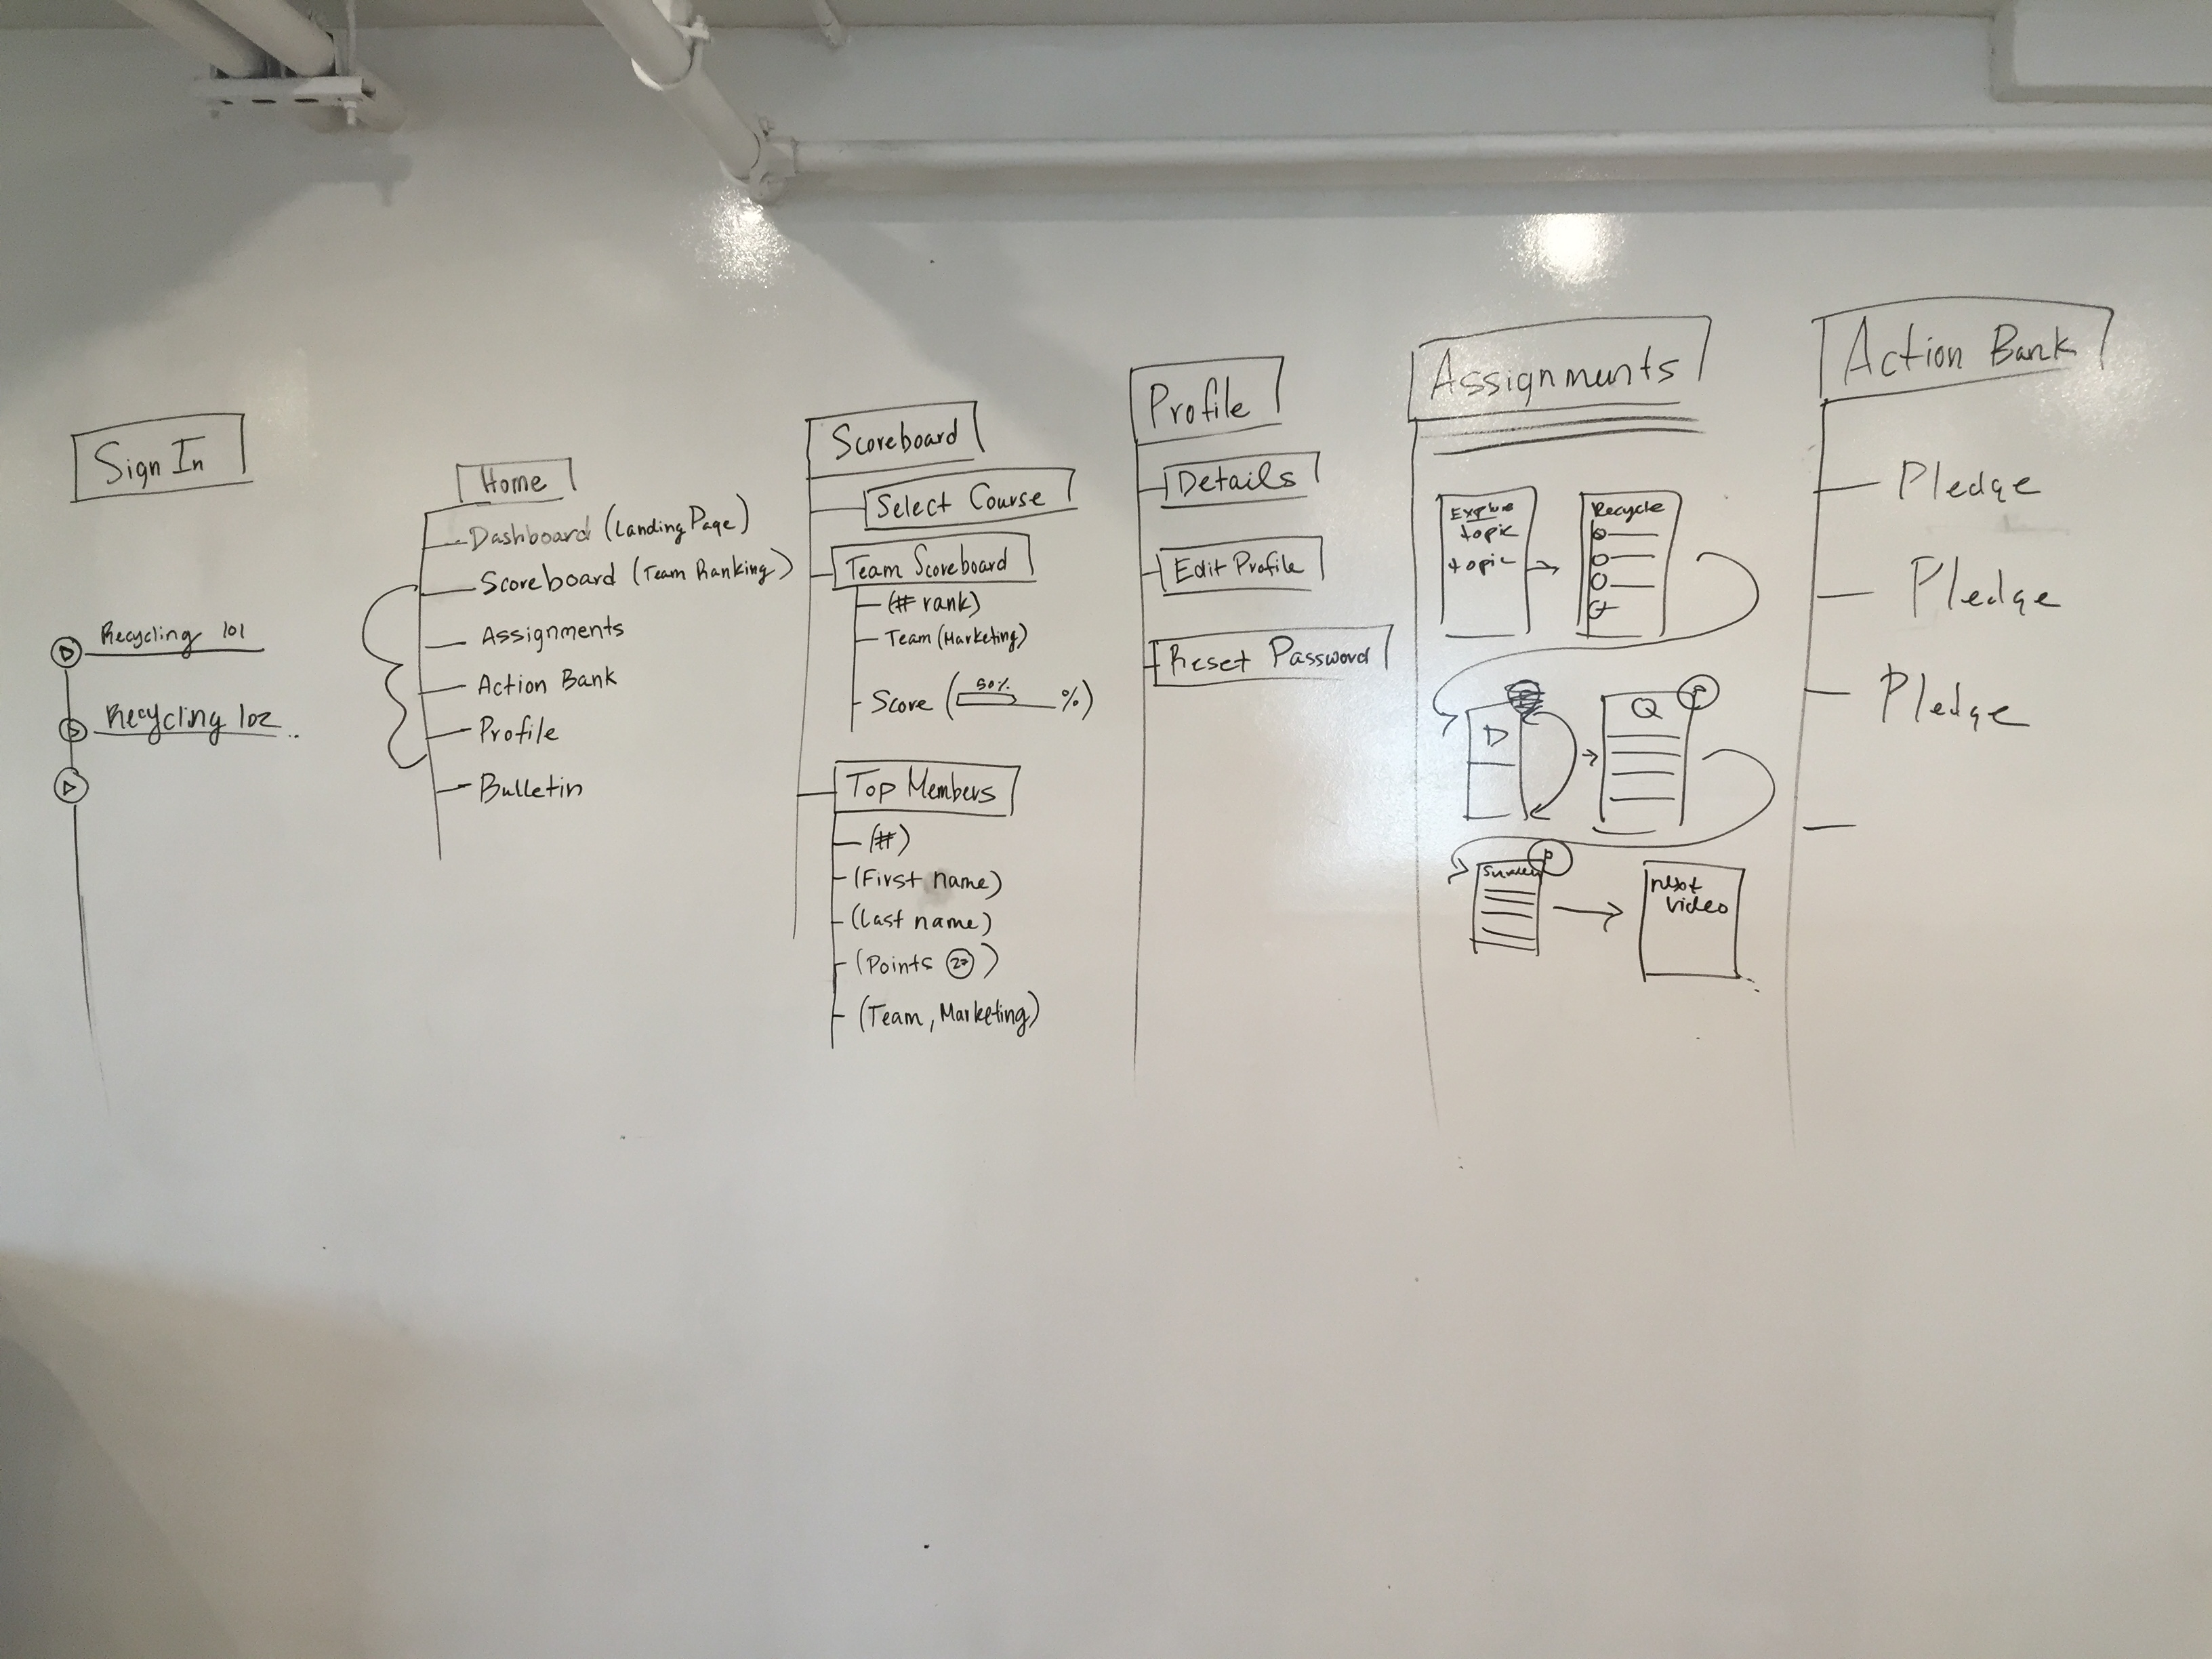 Sign In
Recycling 101
Recycling 102
Home
Dashboard (Landing Page)
Scoreboard (Team Ranking)
Assignments
Action Bank
Profile
Bulletin
Scoreboard
Select Course
Team Scoreboard
(# rank)
Team (Marketing)
50%
Score ( %)
Top Members
(#)
(First name)
(Last name)
(Points )
(Team, Marketing)
Profile
Details
Edit Profile
Reset Password
Assignments
Explore
topic
topic
Recycle
D
Q
P
P
next
video
Action Bank
Pledge
Pledge
Pledge